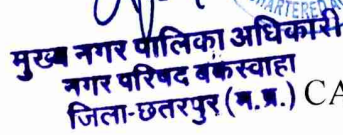 CHARTERED A
मुख्य नगर पालिका अधिकारी
नगर परिषद बकस्वाहा
जिला-छतरपुर (म.प्र.) CA